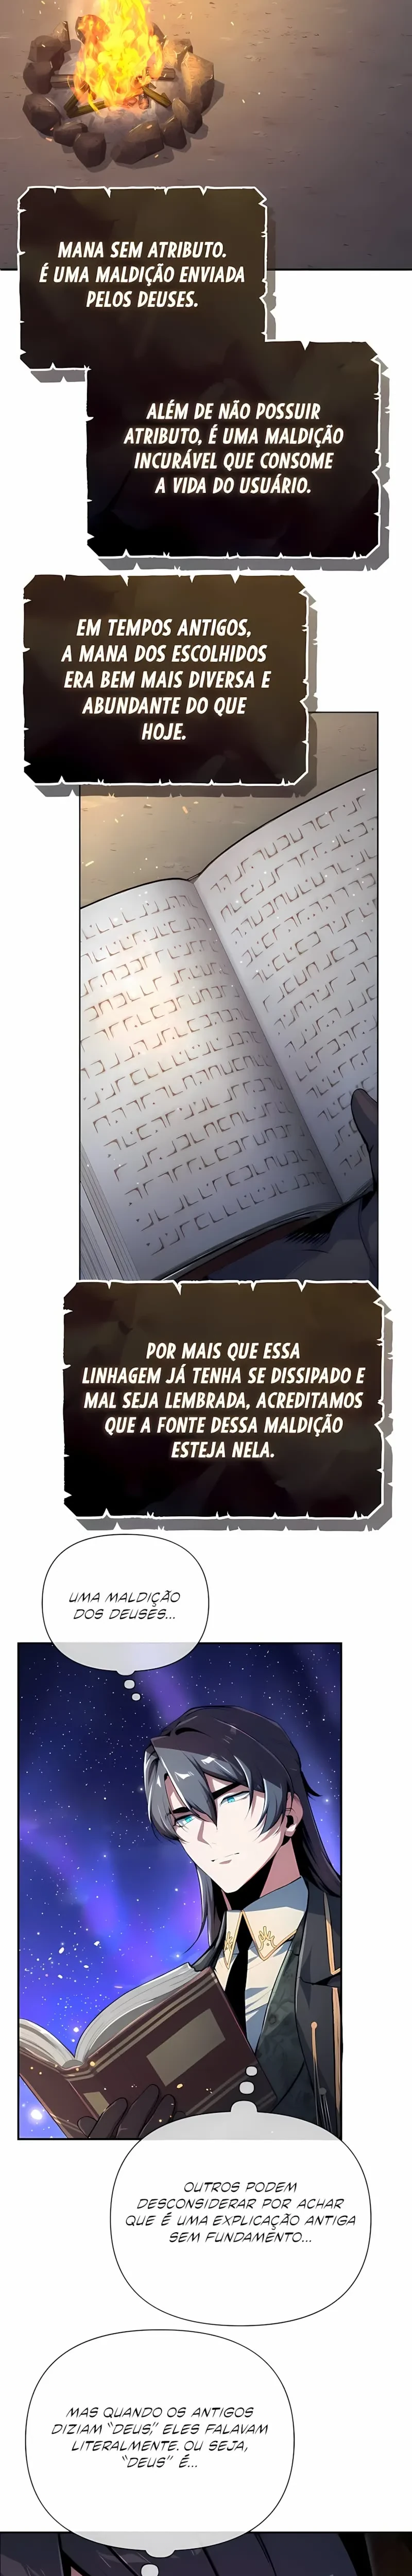 MANA SEM ATRIBUTO.
É UMA MALDIÇÃO ENVIADA
PELOS DEUSES.
ALÉM DE NÃO POSSUIR
ATRIBUTO, É UMA MALDIÇÃO
INCURÁVEL QUE CONSOME
A VIDA DO USUÁRIO.
EM TEMPOS ANTIGOS,
A MANA DOS ESCOLHIDOS
ERA BEM MAIS DIVERSA E
ABUNDANTE DO QUE
HOJE.
POR MAIS QUE ESSA
LINHAGEM JÁ TENHA SE DISSIPADO E
MAL SEJA LEMBRADA, ACREDITAMOS
QUE A FONTE DESSA MALDIÇÃO
ESTEJA NELA.
UMA MALDIÇÃO
DOS DEUSES...
OUTROS PODEM
DESCONSIDERAR POR ACHAR
QUE É UMA EXPLICAÇÃO ANTIGA
SEM FUNDAMENTO...
MAS QUANDO OS ANTIGOS
DIZIAM "DEUS," ELES FALAVAM
LITERALMENTE. OU SEJA,
"DEUS" É...